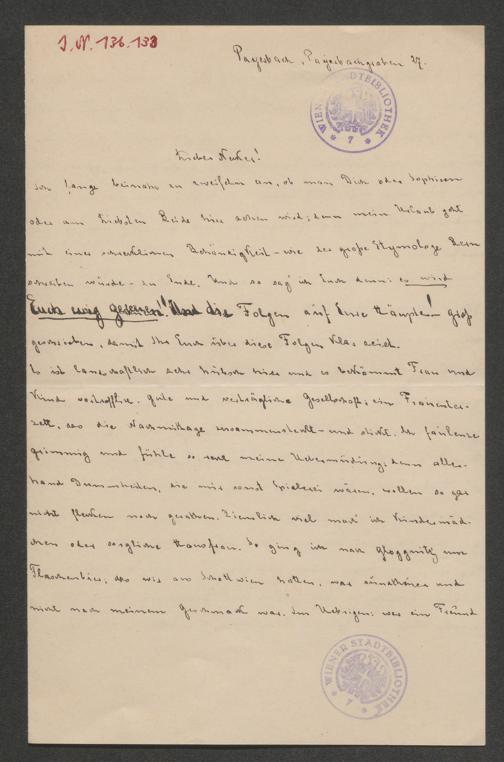 J.N. 136.138
Payerbach, Payerbachgraben 27.
WIENER STADTBIBLIOTHEK
* 7 *
Lieber Necker!
Ich fange beinahe zu zweifeln an, ob man Dich oder Sophieen
oder am liebsten Beide hier sehen wird; denn mein Urlaub geht
mit einer schrecklichen Behändigkeit – wie der große Etymologe
schreiben würde – zu Ende. Und so sag' ich Euch denn: es wird
Euch ewig gereuen! Und die Folgen auf Eure Häupter! groß
geschrieben, damit Ihr Euch über diese Folgen klar seid.
Es ist landschaftlich sehr hübsch hier und es bekömmt Frau und
Kind vortrefflich. Gute und verträgliche Gesellschaft; ein
wo die Nachmittage zusammenhockt – und stickt. Ich faulenze
grimmig und fühle so recht meine Uebermüdung; denn aller-
hand Dummheiten, die mir sonst Spielerei wären, wollen so gar
nicht flecken noch gerathen. Ziemlich viel mach' ich Kindermäd-
chen oder sorgliche Hausfrau. So ging ich nach Gloggnitz um
Flaschenbier, wo wir an Schottwien hatten, was
nicht nach meinem Geschmack war. Im Uebrigen: wer ein Freund
WIENER STADTBIBLIOTHEK
* 7 *